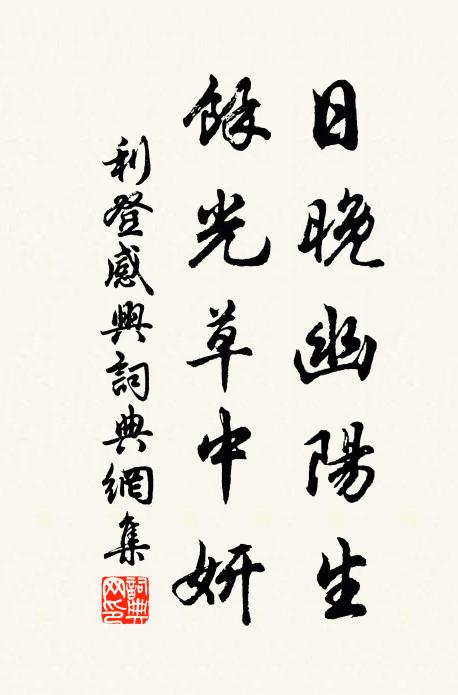 日晚幽陽生
餘光草中妍
利登感興詞典網集
詞典网印